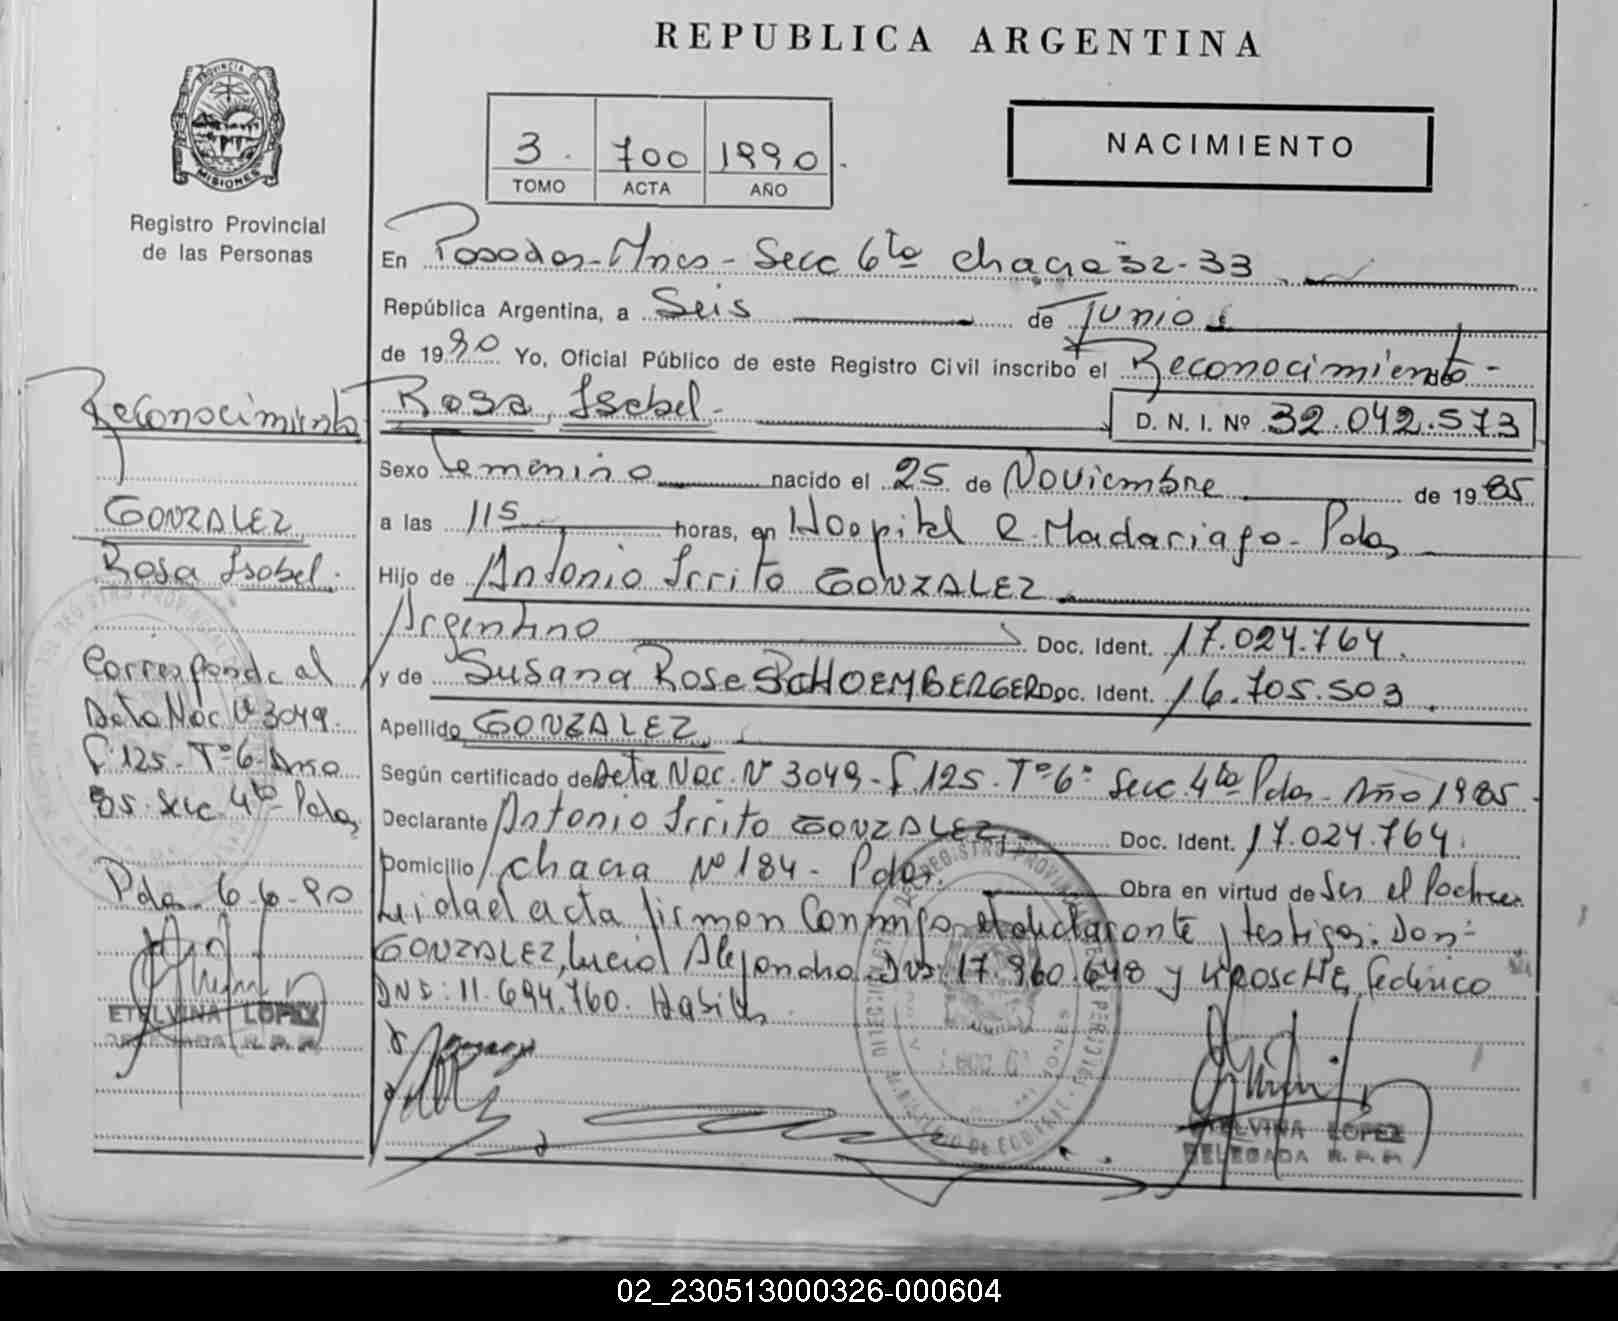 REPUBLICA ARGENTINA
PROVINCIA DE
MISIONES
Registro Provincial
de las Personas
3. 700 1990.
TOMO ACTA AÑO
NACIMIENTO
En Posadas-Mnes- Secc 6ta chacra 32-33
República Argentina, a Seis de Junio
de 1990 Yo, Oficial Público de este Registro Civil inscribo el Reconocimiento-
Rosa, Isabel- D. N. I. Nº 32.042.573
Sexo Femenino nacido el 25 de Noviembre de 1985
a las 115 horas, en Hospital R. Madariaga- Pdas
Hijo de Antonio Irrito GONZALEZ
Argentino Doc. Ident. 17.024.764.
y de Susana Rosa SCHOEMBERGER Doc. Ident. 16.705.503.
Apellido GONZALEZ
Según certificado de Acta Nac. Nº 3049- F. 125. Tº 6º Secc 4ta Pdas- Año 1985-
Declarante Antonio Irrito GONZALEZ, Doc. Ident. 17.024.764.
Domicilio chacra Nº 184- Pdas. Obra en virtud de Ser el Padre
Leida el acta firman Conmigo el declarante y testigos: Don:
GONZALEZ, Lucio Alejandro. DNI: 17.960.648 y Federico
DNI: 11.694.760. Habiles
ETELVINA LOPEZ
DELEGADA R. P. P.
Reconocimiento
GONZALEZ
Rosa Isabel.
Corresponde al
Acta Nac. Nº 3049.
F. 125. Tº 6- Año
85. Secc 4ta- Pdas
Pdas. 6-6-90
ETELVINA LOPEZ
DELEGADA R. P. P.
02_230513000326-000604